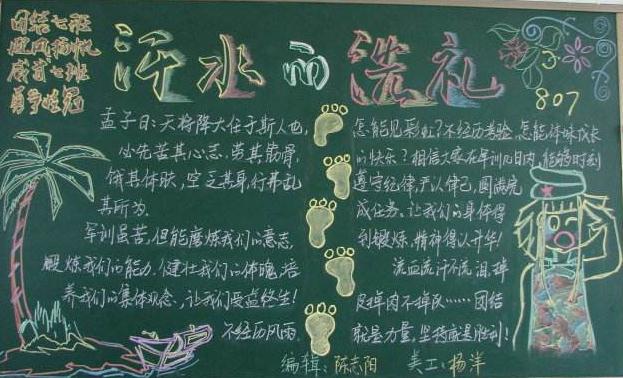 团结七班
迎风扬帆
威首七班
勇争唯冠
汗水的洗礼
807
孟子曰：天将降大任于斯人也，
必先苦其心志，劳其筋骨，
饿其体肤，空乏其身，行弗乱
其所为。
军训虽苦，但能磨炼我们的意志，
锻炼我们的能力，健壮我们的体魄，培
养我们的集体观念，让我们受益终生！
不经历风雨，
怎能见彩虹？不经历考验，怎能体味成长
的快乐？相信大家在军训几日内，能够时刻
遵守纪律，严以律己，圆满完
成任务。让我们的身体得
到锻炼，精神得以升华！
流血流汗不流泪，掉
皮掉肉不掉队……团结
就是力量，坚持就是胜利！
编辑：陈志阳 美工：杨洋